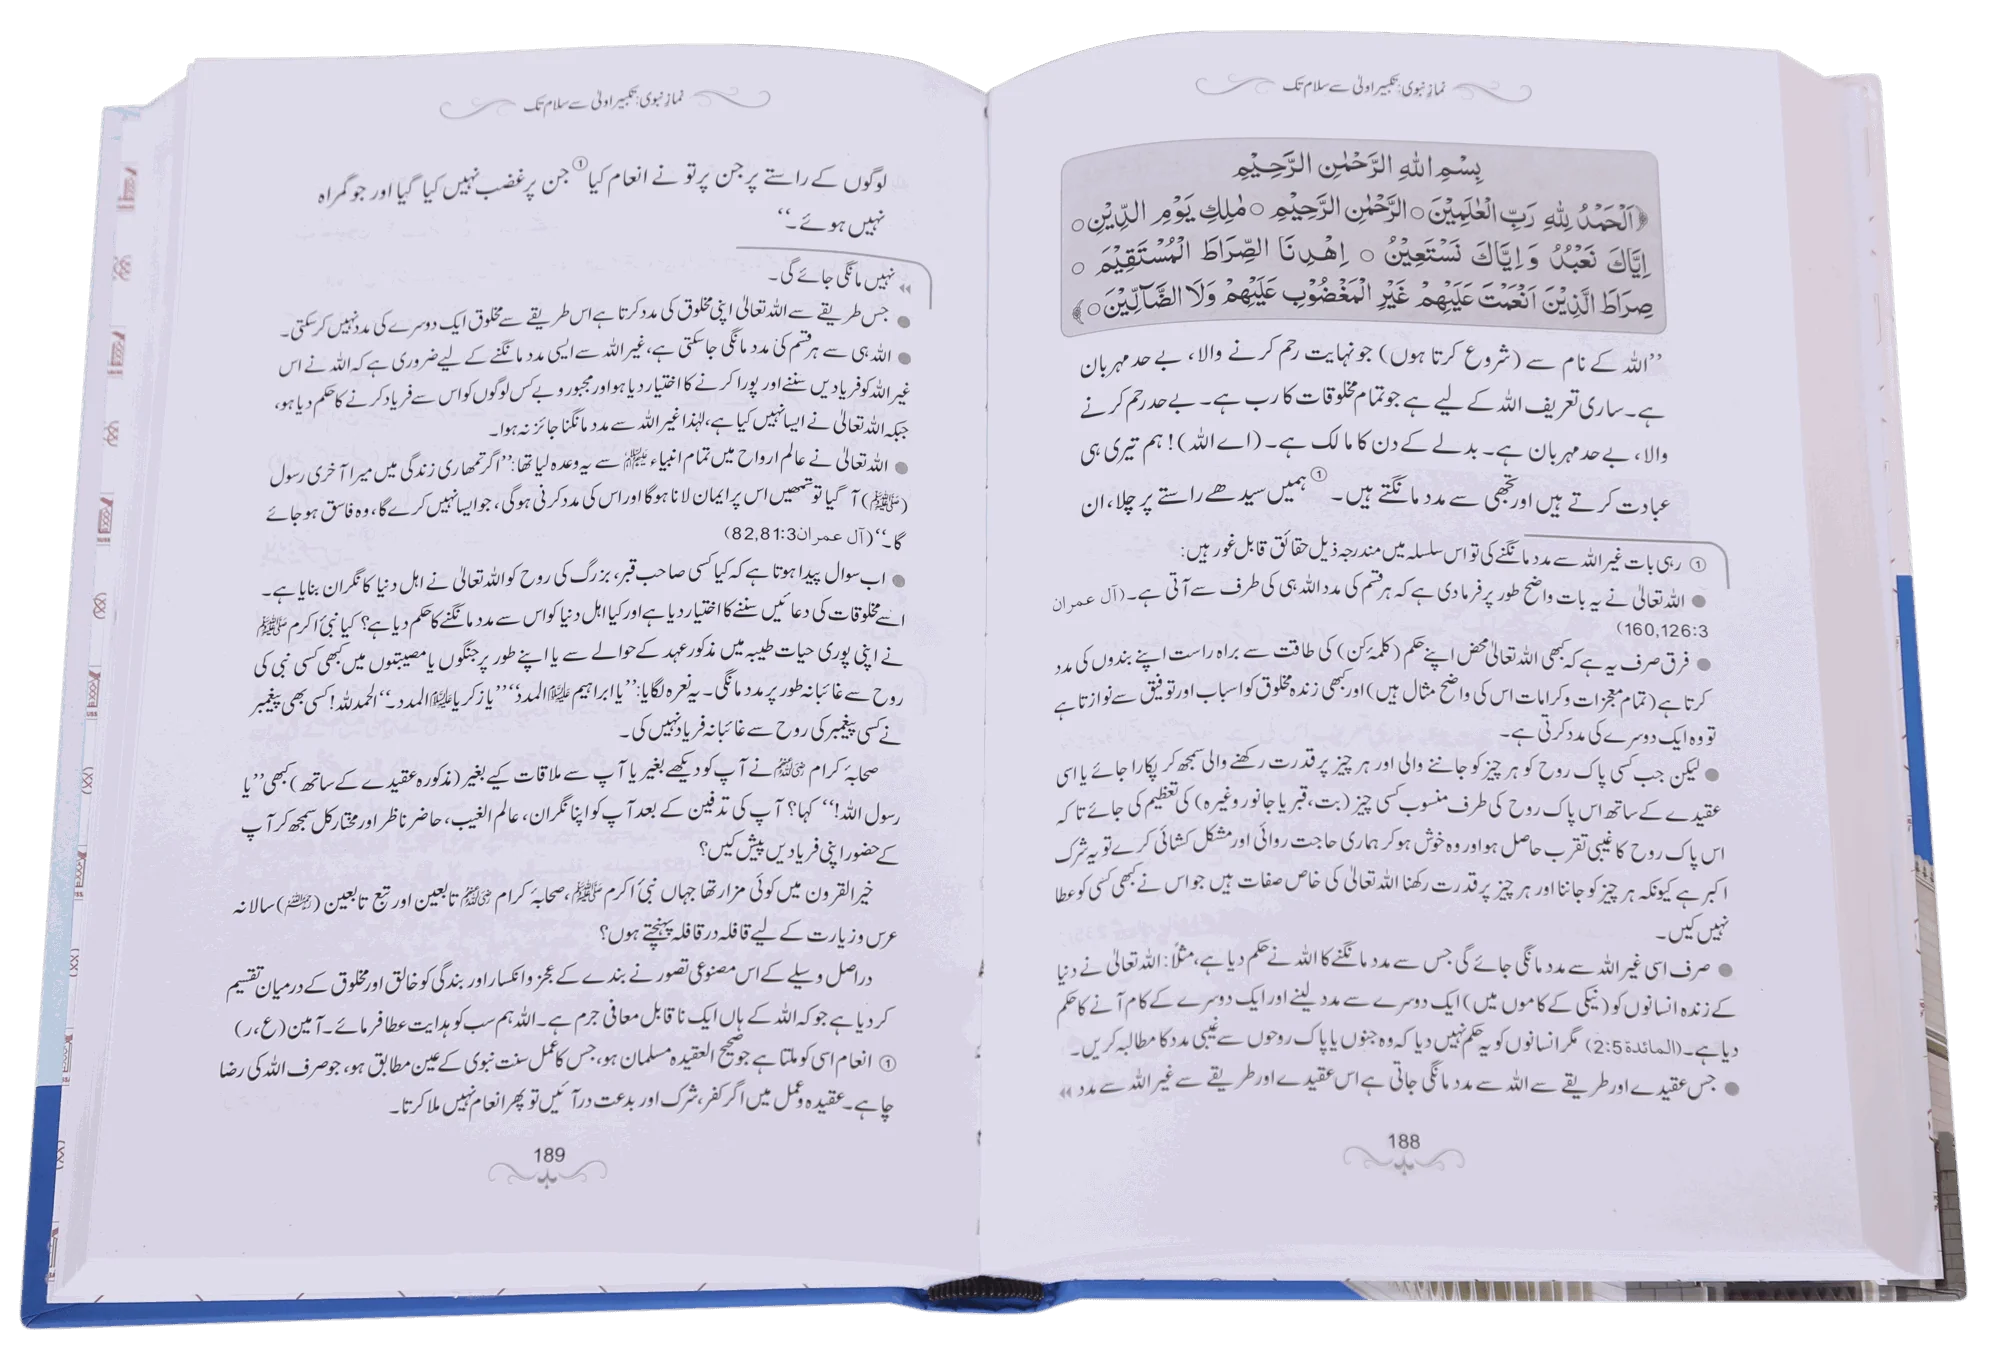 نمازِ نبوی: تکبیر اولیٰ سے سلام تک
بِسْمِ اللهِ الرَّحْمٰنِ الرَّحِيْمِ
﴿اَلْحَمْدُ لِلهِ رَبِّ الْعٰلَمِيْنَ○ الرَّحْمٰنِ الرَّحِيْمِ○ مٰلِكِ يَوْمِ الدِّيْنِ○
اِيَّاكَ نَعْبُدُ وَاِيَّاكَ نَسْتَعِيْنُ○ اِهْدِنَا الصِّرَاطَ الْمُسْتَقِيْمَ○
صِرَاطَ الَّذِيْنَ اَنْعَمْتَ عَلَيْهِمْ غَيْرِ الْمَغْضُوْبِ عَلَيْهِمْ وَلَا الضَّآلِّيْنَ○﴾
”اللہ کے نام سے (شروع کرتا ہوں) جو نہایت رحم کرنے والا، بے حد مہربان
ہے۔ ساری تعریف اللہ کے لیے ہے جو تمام مخلوقات کا رب ہے۔ بے حد رحم کرنے
والا، بے حد مہربان ہے۔ بدلے کے دن کا مالک ہے۔ (اے اللہ)! ہم تیری ہی
عبادت کرتے ہیں اور تجھی سے مدد مانگتے ہیں۔① ہمیں سیدھے راستے پر چلا، ان
① رہی بات غیر اللہ سے مدد مانگنے کی تو اس سلسلہ میں مندرجہ ذیل حقائق قابل غور ہیں:
● اللہ تعالیٰ نے یہ بات واضح طور پر فرما دی ہے کہ ہر قسم کی مدد اللہ ہی کی طرف سے آتی ہے۔ (آل عمران
160,126:3)
● فرق صرف یہ ہے کہ کبھی اللہ تعالیٰ محض اپنے حکم (کلمۂ کن) کی طاقت سے براہ راست اپنے بندوں کی مدد
کرتا ہے (تمام معجزات و کرامات اس کی واضح مثال ہیں) اور کبھی زندہ مخلوق کو اسباب اور توفیق سے نوازتا ہے
تو وہ ایک دوسرے کی مدد کرتی ہے۔
● لیکن جب کسی پاک روح کو ہر چیز کو جاننے والی اور ہر چیز پر قدرت رکھنے والی سمجھ کر پکارا جائے یا اسی
عقیدے کے ساتھ اس پاک روح کی طرف منسوب کسی چیز (بت، قبر یا جانور وغیرہ) کی تعظیم کی جائے تاکہ
اس پاک روح کا غیبی تقرب حاصل ہو اور وہ خوش ہو کر ہماری حاجت روائی اور مشکل کشائی کرے تو یہ شرک
اکبر ہے کیونکہ ہر چیز کو جاننا اور ہر چیز پر قدرت رکھنا اللہ تعالیٰ کی خاص صفات ہیں جو اس نے کبھی کسی کو عطا
نہیں کیں۔
● صرف اسی غیر اللہ سے مدد مانگی جائے گی جس سے مدد مانگنے کا اللہ نے حکم دیا ہے، مثلًا: اللہ تعالیٰ نے دنیا
کے زندہ انسانوں کو (نیکی کے کاموں میں) ایک دوسرے سے مدد لینے اور ایک دوسرے کے کام آنے کا حکم
دیا ہے۔ (المائدة 2:5) مگر انسانوں کو یہ حکم نہیں دیا کہ وہ جنوں یا پاک روحوں سے غیبی مدد کا مطالبہ کریں۔
● جس عقیدے اور طریقے سے اللہ سے مدد مانگی جاتی ہے اس عقیدے اور طریقے سے غیر اللہ سے مدد
188
نمازِ نبوی: تکبیر اولیٰ سے سلام تک
لوگوں کے راستے پر جن پر تو نے انعام کیا① جن پر غضب نہیں کیا گیا اور جو گمراہ
نہیں ہوئے۔“
نہیں مانگی جائے گی۔
● جس طریقے سے اللہ تعالیٰ اپنی مخلوق کی مدد کرتا ہے اس طریقے سے مخلوق ایک دوسرے کی مدد نہیں کر سکتی۔
● اللہ ہی سے ہر قسم کی مدد مانگی جا سکتی ہے، غیر اللہ سے ایسی مدد مانگنے کے لیے ضروری ہے کہ اللہ نے اس
غیر اللہ کو فریادیں سننے اور پورا کرنے کا اختیار دیا ہو اور مجبور و بے کس لوگوں کو اس سے فریاد کرنے کا حکم دیا ہو،
جبکہ اللہ تعالیٰ نے ایسا نہیں کیا ہے، لہٰذا غیر اللہ سے مدد مانگنا جائز نہ ہوا۔
● اللہ تعالیٰ نے عالم ارواح میں تمام انبیاء علیہم السلام سے یہ وعدہ لیا تھا: ”اگر تمھاری زندگی میں میرا آخری رسول
(ﷺ) آ گیا تو تمھیں اس پر ایمان لانا ہوگا اور اس کی مدد کرنی ہوگی، جو ایسا نہیں کرے گا، وہ فاسق ہو جائے
گا۔“ (آل عمران 82,81:3)
● اب سوال پیدا ہوتا ہے کہ کیا کسی صاحب قبر، بزرگ کی روح کو اللہ تعالیٰ نے اہل دنیا کا نگران بنایا ہے۔
اسے مخلوقات کی دعائیں سننے کا اختیار دیا ہے اور کیا اہل دنیا کو اس سے مدد مانگنے کا حکم دیا ہے؟ کیا نبیٔ اکرم ﷺ
نے اپنی پوری حیات طیبہ میں مذکور عہد کے حوالے سے یا اپنے طور پر جنگوں یا مصیبتوں میں کبھی کسی نبی کی
روح سے غائبانہ طور پر مدد مانگی۔ یہ نعرہ لگایا: ”یا ابراہیم علیہ السلام المدد“ ”یا زکریا علیہ السلام المدد۔“ الحمد للہ! کسی بھی پیغمبر
نے کسی پیغمبر کی روح سے غائبانہ فریاد نہیں کی۔
صحابۂ کرام رضی اللہ عنہم نے آپ کو دیکھے بغیر یا آپ سے ملاقات کیے بغیر (مذکورہ عقیدے کے ساتھ) کبھی ”یا
رسول اللہ!“ کہا؟ آپ کی تدفین کے بعد آپ کو اپنا نگران، عالم الغیب، حاضر ناظر اور مختار کل سمجھ کر آپ
کے حضور اپنی فریادیں پیش کیں؟
خیر القرون میں کوئی مزار تھا جہاں نبیٔ اکرم ﷺ، صحابۂ کرام رضی اللہ عنہم تابعین اور تبع تابعین (رحمہم اللہ) سالانہ
عرس و زیارت کے لیے قافلہ در قافلہ پہنچتے ہوں؟
دراصل وسیلے کے اس مصنوعی تصور نے بندے کے عجز و انکسار اور بندگی کو خالق اور مخلوق کے درمیان تقسیم
کر دیا ہے جو کہ اللہ کے ہاں ایک ناقابل معافی جرم ہے۔ اللہ ہم سب کو ہدایت عطا فرمائے۔ آمین (ع،ر)
① انعام اسی کو ملتا ہے جو صحیح العقیدہ مسلمان ہو، جس کا عمل سنت نبوی کے عین مطابق ہو، جو صرف اللہ کی رضا
چاہے۔ عقیدہ و عمل میں اگر کفر، شرک اور بدعت در آئیں تو پھر انعام نہیں ملا کرتا۔
189